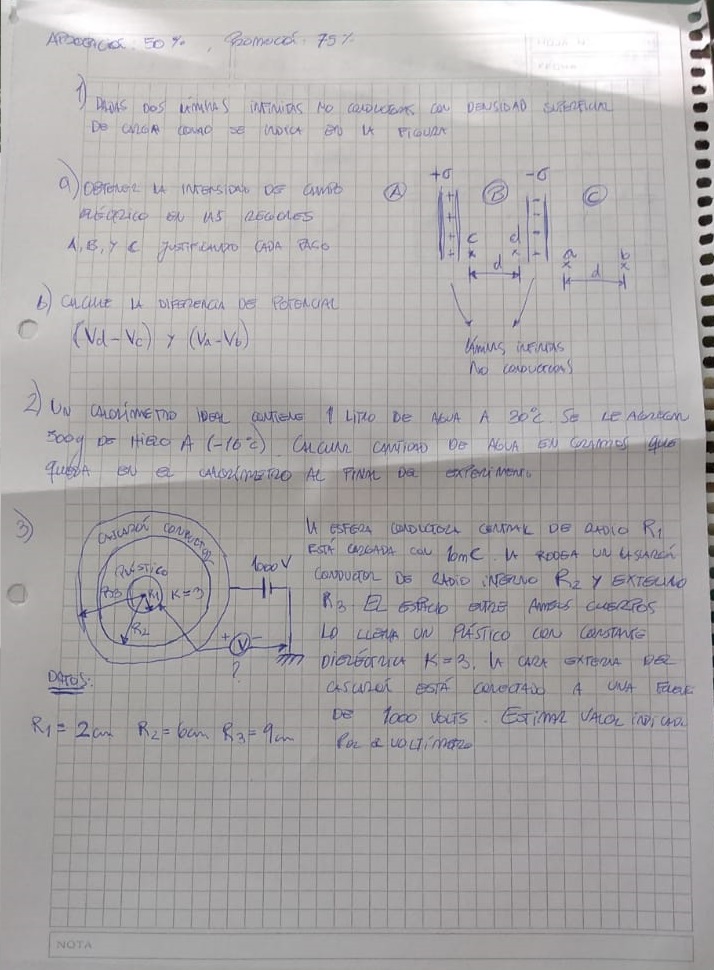 APROBACIÓN: 50%, PROMOCIÓN: 75%
HOJA N°
FECHA
1) DADAS DOS LÁMINAS INFINITAS NO CONDUCTORAS CON DENSIDAD SUPERFICIAL
DE CARGA COMO SE INDICA EN LA FIGURA
a) OBTENER LA INTENSIDAD DE CAMPO
ELÉCTRICO EN LAS REGIONES
A, B, Y C JUSTIFICANDO CADA PASO
+σ -σ
A B C
c d a b
x x x x
d d
LÁMINAS INFINITAS
NO CONDUCTORAS
b) CALCULE LA DIFERENCIA DE POTENCIAL
(Vd-Vc) Y (Va-Vb)
2) UN CALORÍMETRO IDEAL CONTIENE 1 LITRO DE AGUA A 30°C. SE LE AGREGAN
500g DE HIELO A (-16°C). CALCULAR CANTIDAD DE AGUA EN GRAMOS QUE
QUEDA EN EL CALORÍMETRO AL FINAL DEL EXPERIMENTO
3)
CASCARÓN CONDUCTOR
PLÁSTICO
R3 R1 K=3
R2
1000 V
+ V -
?
LA ESFERA CONDUCTORA CENTRAL DE RADIO R1
ESTÁ CARGADA CON 10mC. LA RODEA UN CASCARÓN
CONDUCTOR DE RADIO INTERNO R2 Y EXTERNO
R3 EL ESPACIO ENTRE AMBOS CUERPOS
LO LLENA UN PLÁSTICO CON CONSTANTE
DIELÉCTRICA K=3. LA CARA EXTERNA DEL
CASCARÓN ESTÁ CONECTADO A UNA FUENTE
DE 1000 VOLTS. ESTIMAR VALOR INDICADO
POR EL VOLTÍMETRO
DATOS:
R1= 2cm R2= 6cm R3= 9cm
NOTA